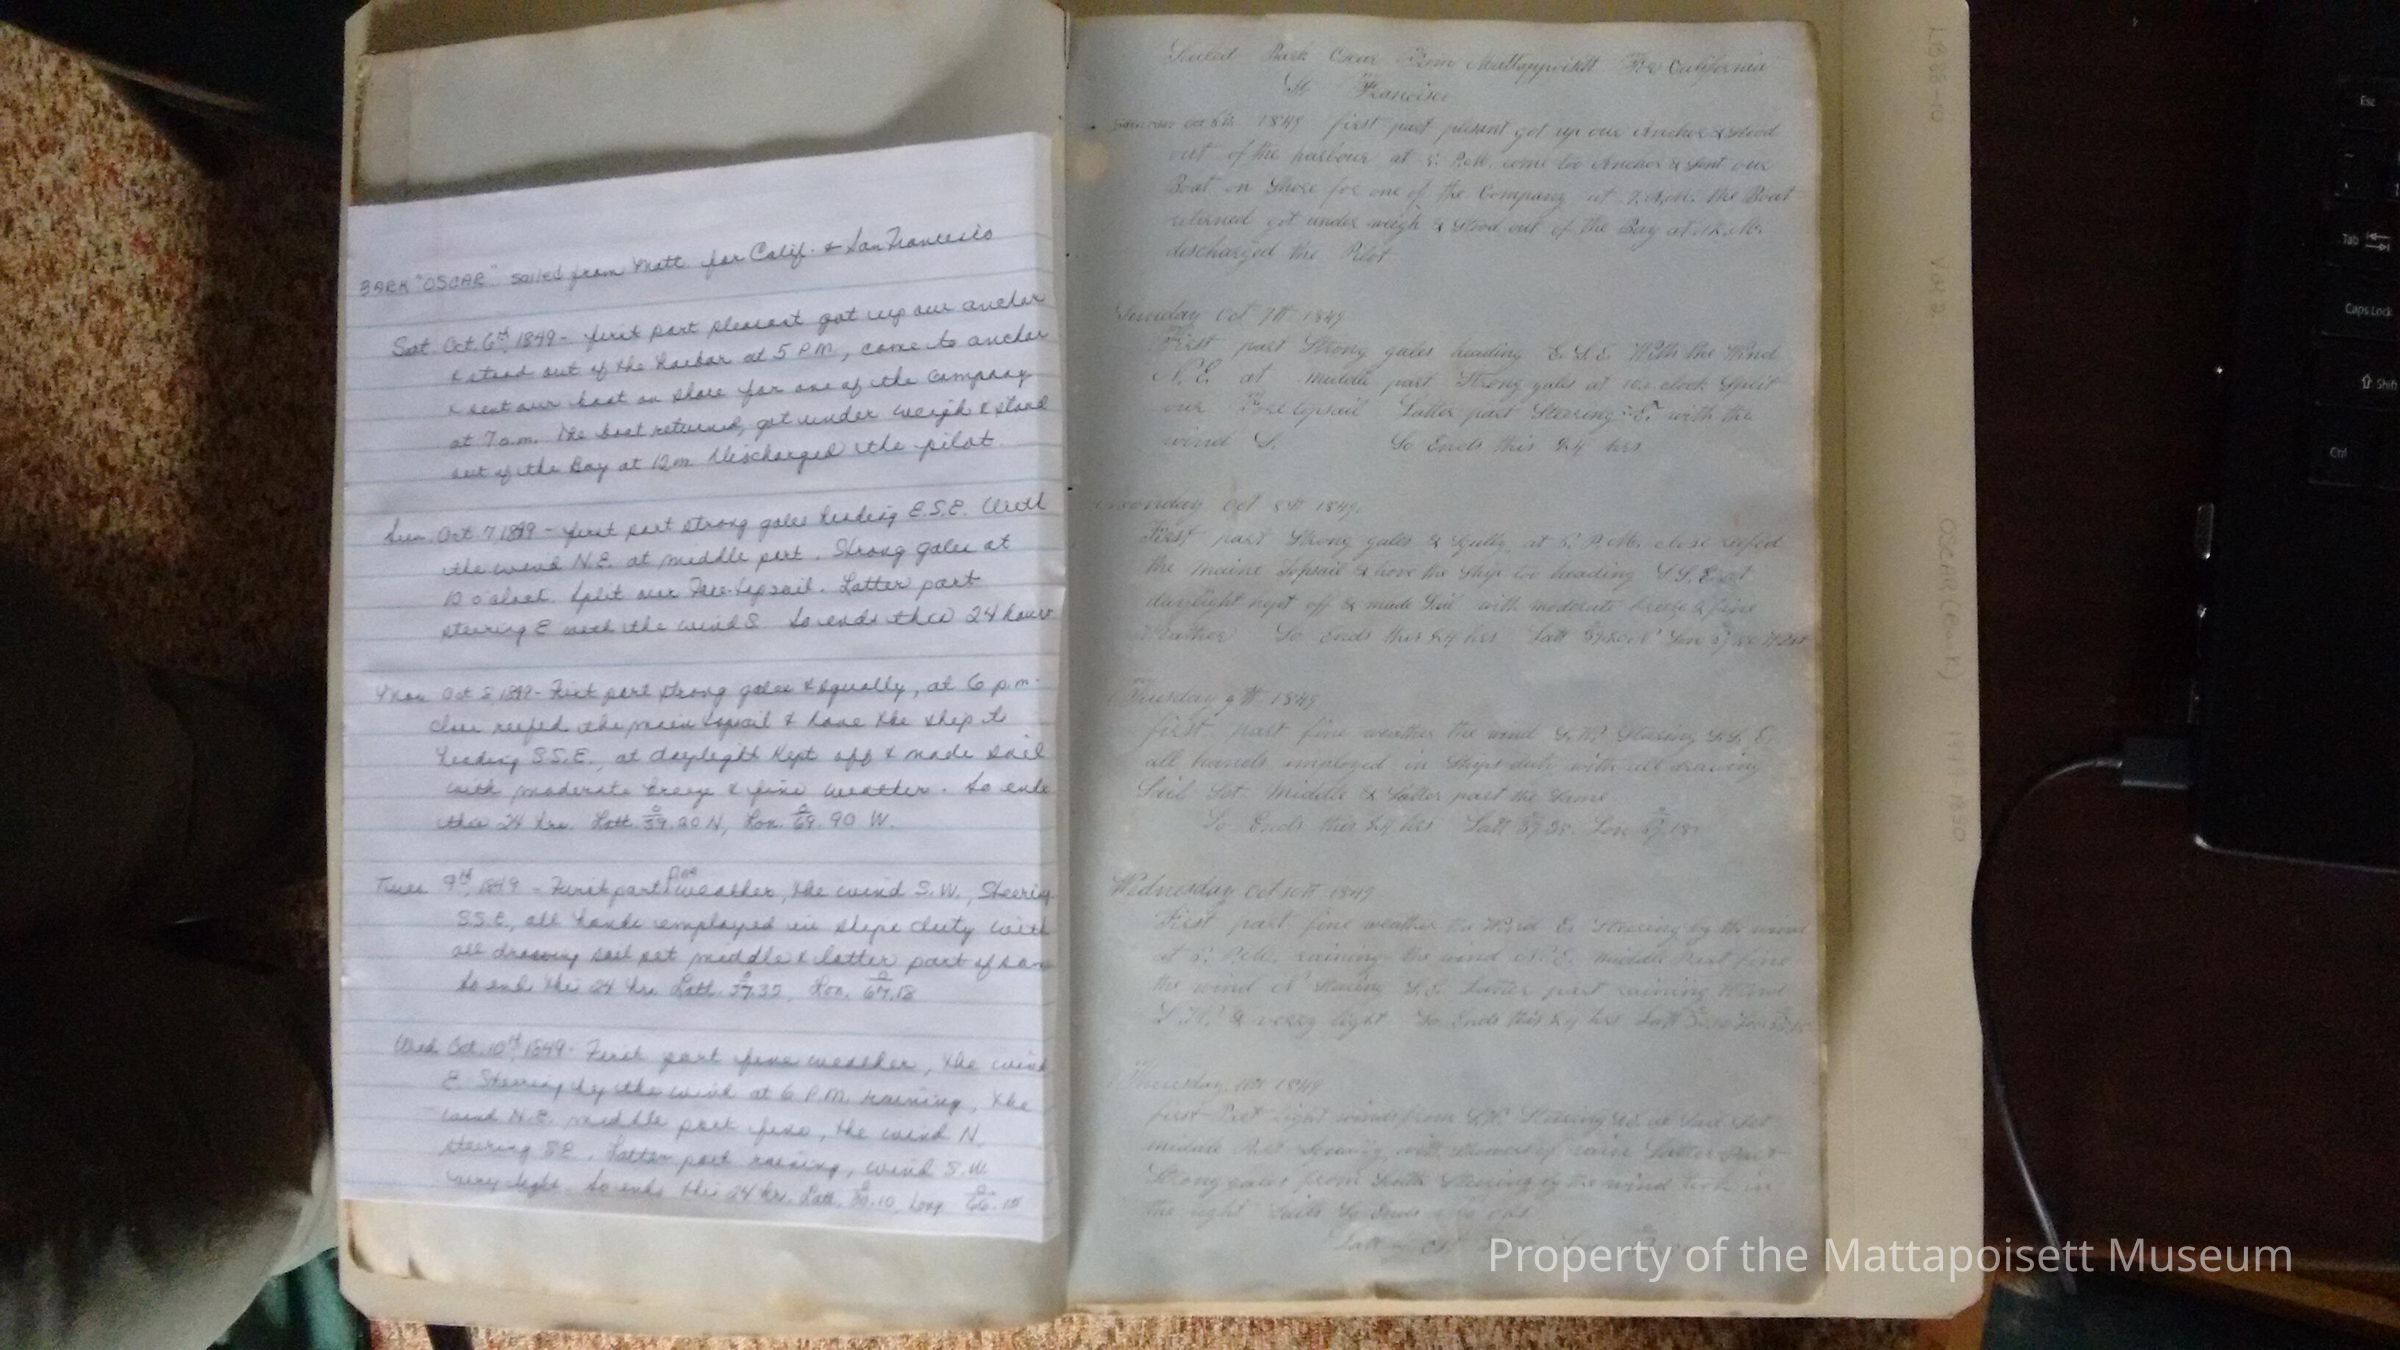 BARK "OSCAR" sailed from Matt. for Calif. & San Francisco
Sat. Oct. 6th, 1849 - first part pleasant got up our anchor
& stood out of the harbor at 5 P.M., come to anchor
& sent our boat on shore for one of the Company
at 7 a.m. The boat returned, got under weigh & stood
out of the Bay at 12 m. Discharged the pilot.
Sun. Oct. 7, 1849 - first part strong gales heading E.S.E. With
the wind N.E. at middle part. Strong gales at
10 o'clock. Split our Fore-topsail. Latter part
steering E with the wind S. So ends this 24 hours
Mon. Oct. 8, 1849 - First part strong gales & squally, at 6 p.m.
close reefed the main topsail & hove the ship to
heading S.S.E., at daylight kept off & made sail
with moderate breeze & fine weather. So ends
this 24 hrs. Latt. 39.20 N, Lon. 69.90 W.
Tues. 9th, 1849 - First part fine weather, the wind S.W., Steering
S.S.E., all hands employed in ships duty with
all drawing sail set middle & latter part of same
So ends this 24 hrs. Latt. 37.35, Lon. 67.18
Wed. Oct. 10th, 1849 - First part fine weather, the wind
E. Steering by the wind at 6 P.M. raining, the
wind N.E. middle part fine, the wind N.
steering SE. Latter part raining, wind S.W.
very light. So ends this 24 hrs. Latt. 36.10, Long. 66.15
Sailed Bark Oscar From Mattappoisett For California
St Francisco
Oct 6th 1849 first part plesant got up our Anchor & Stood
out of the harbour at 5. P.M. come too Anchor & Sent our
Boat on Shore for one of the Company at 7. A.M. the Boat
returned got under weigh & Stood out of the Bay at 12.M.
discharged the Pilot
Sunday Oct 7th 1849
First part Strong gales heading E.S.E. With the Wind
N.E. at middle part Strong gales at 10 o clock Split
our Foretopsail Latter part Steering E. with the
wind S. So Ends this 24 hrs
Monday Oct 8th 1849.
First part Strong gales & Sqully at 6. P.M. close reefed
the maine Topsail & hove the Ship too heading S.S.E. at
daylight kept off & made Sail with moderate breeze & fine
Weather So Ends this 24 hrs Latt 39.20 N Lon
Tuesday 9th 1849
first part fine weather the wind S.W. Stearing S.S.E.
all hands imployed in Ships duty with all drawing
Sail Set Middle & Latter part the Same
So Ends this 24 hrs Latt 37.35 Lon 67.18
Wednesday Oct 10th 1849
First part fine weather the Wind E. Stearing by the wind
at 6. P.M. raining the wind N.E. middle Part fine
the wind N Stearing S.E. Latter part raining Wind
S.W. & very light So Ends this 24 hrs Latt
Thursday 11th 1849
first Part light winds from S.W. Stearing Sail Set
middle Part with Showers of rain Latter Part
Strong gales from South Stearing by the wind took in
the light Sails So Ends
Latt
L986-10 Vol 2 OSCAR (Bark) 1849-1850
Esc
Tab
Caps Lock
Shift
Ctrl
Property of the Mattapoisett Museum